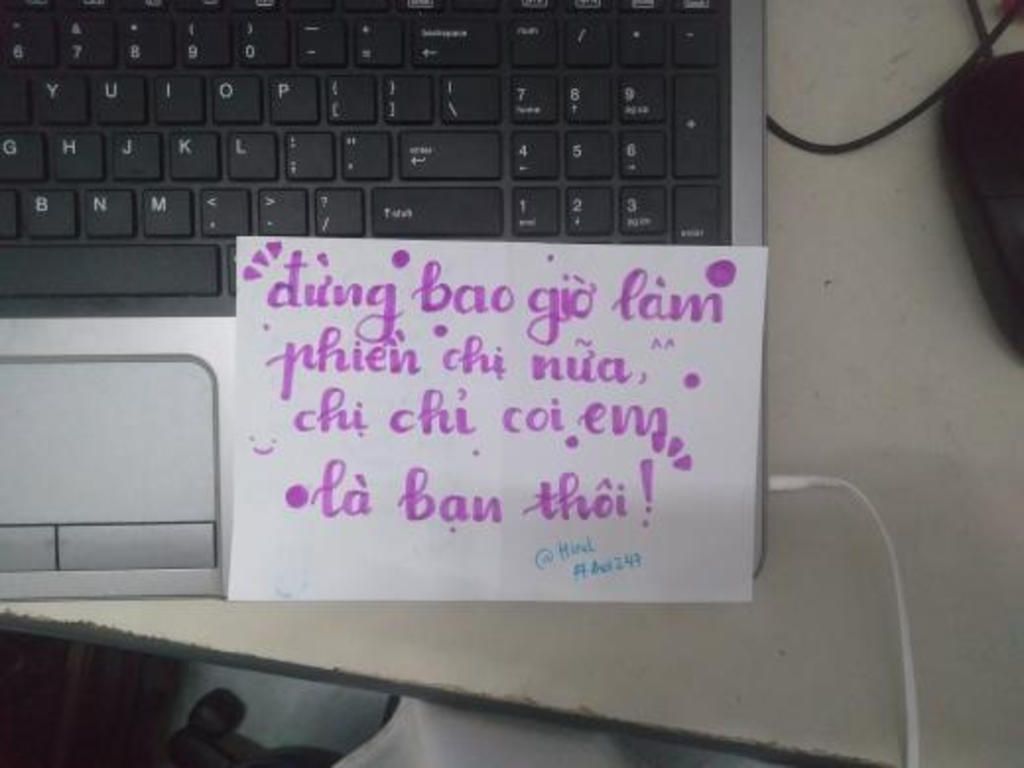 6 & 7 * 8 ( 9 ) 0 — - + = backspace / * -
Y U I O P { [ } ] | \ 7 home 8 9 pg up +
G H J K L : ; " ' enter 4 5 6
B N M < , > . ? / shift 1 end 2 3 pg dn enter
đừng bao giờ làm
phiền chị nữa, ^^
chị chỉ coi em
là bạn thôi!